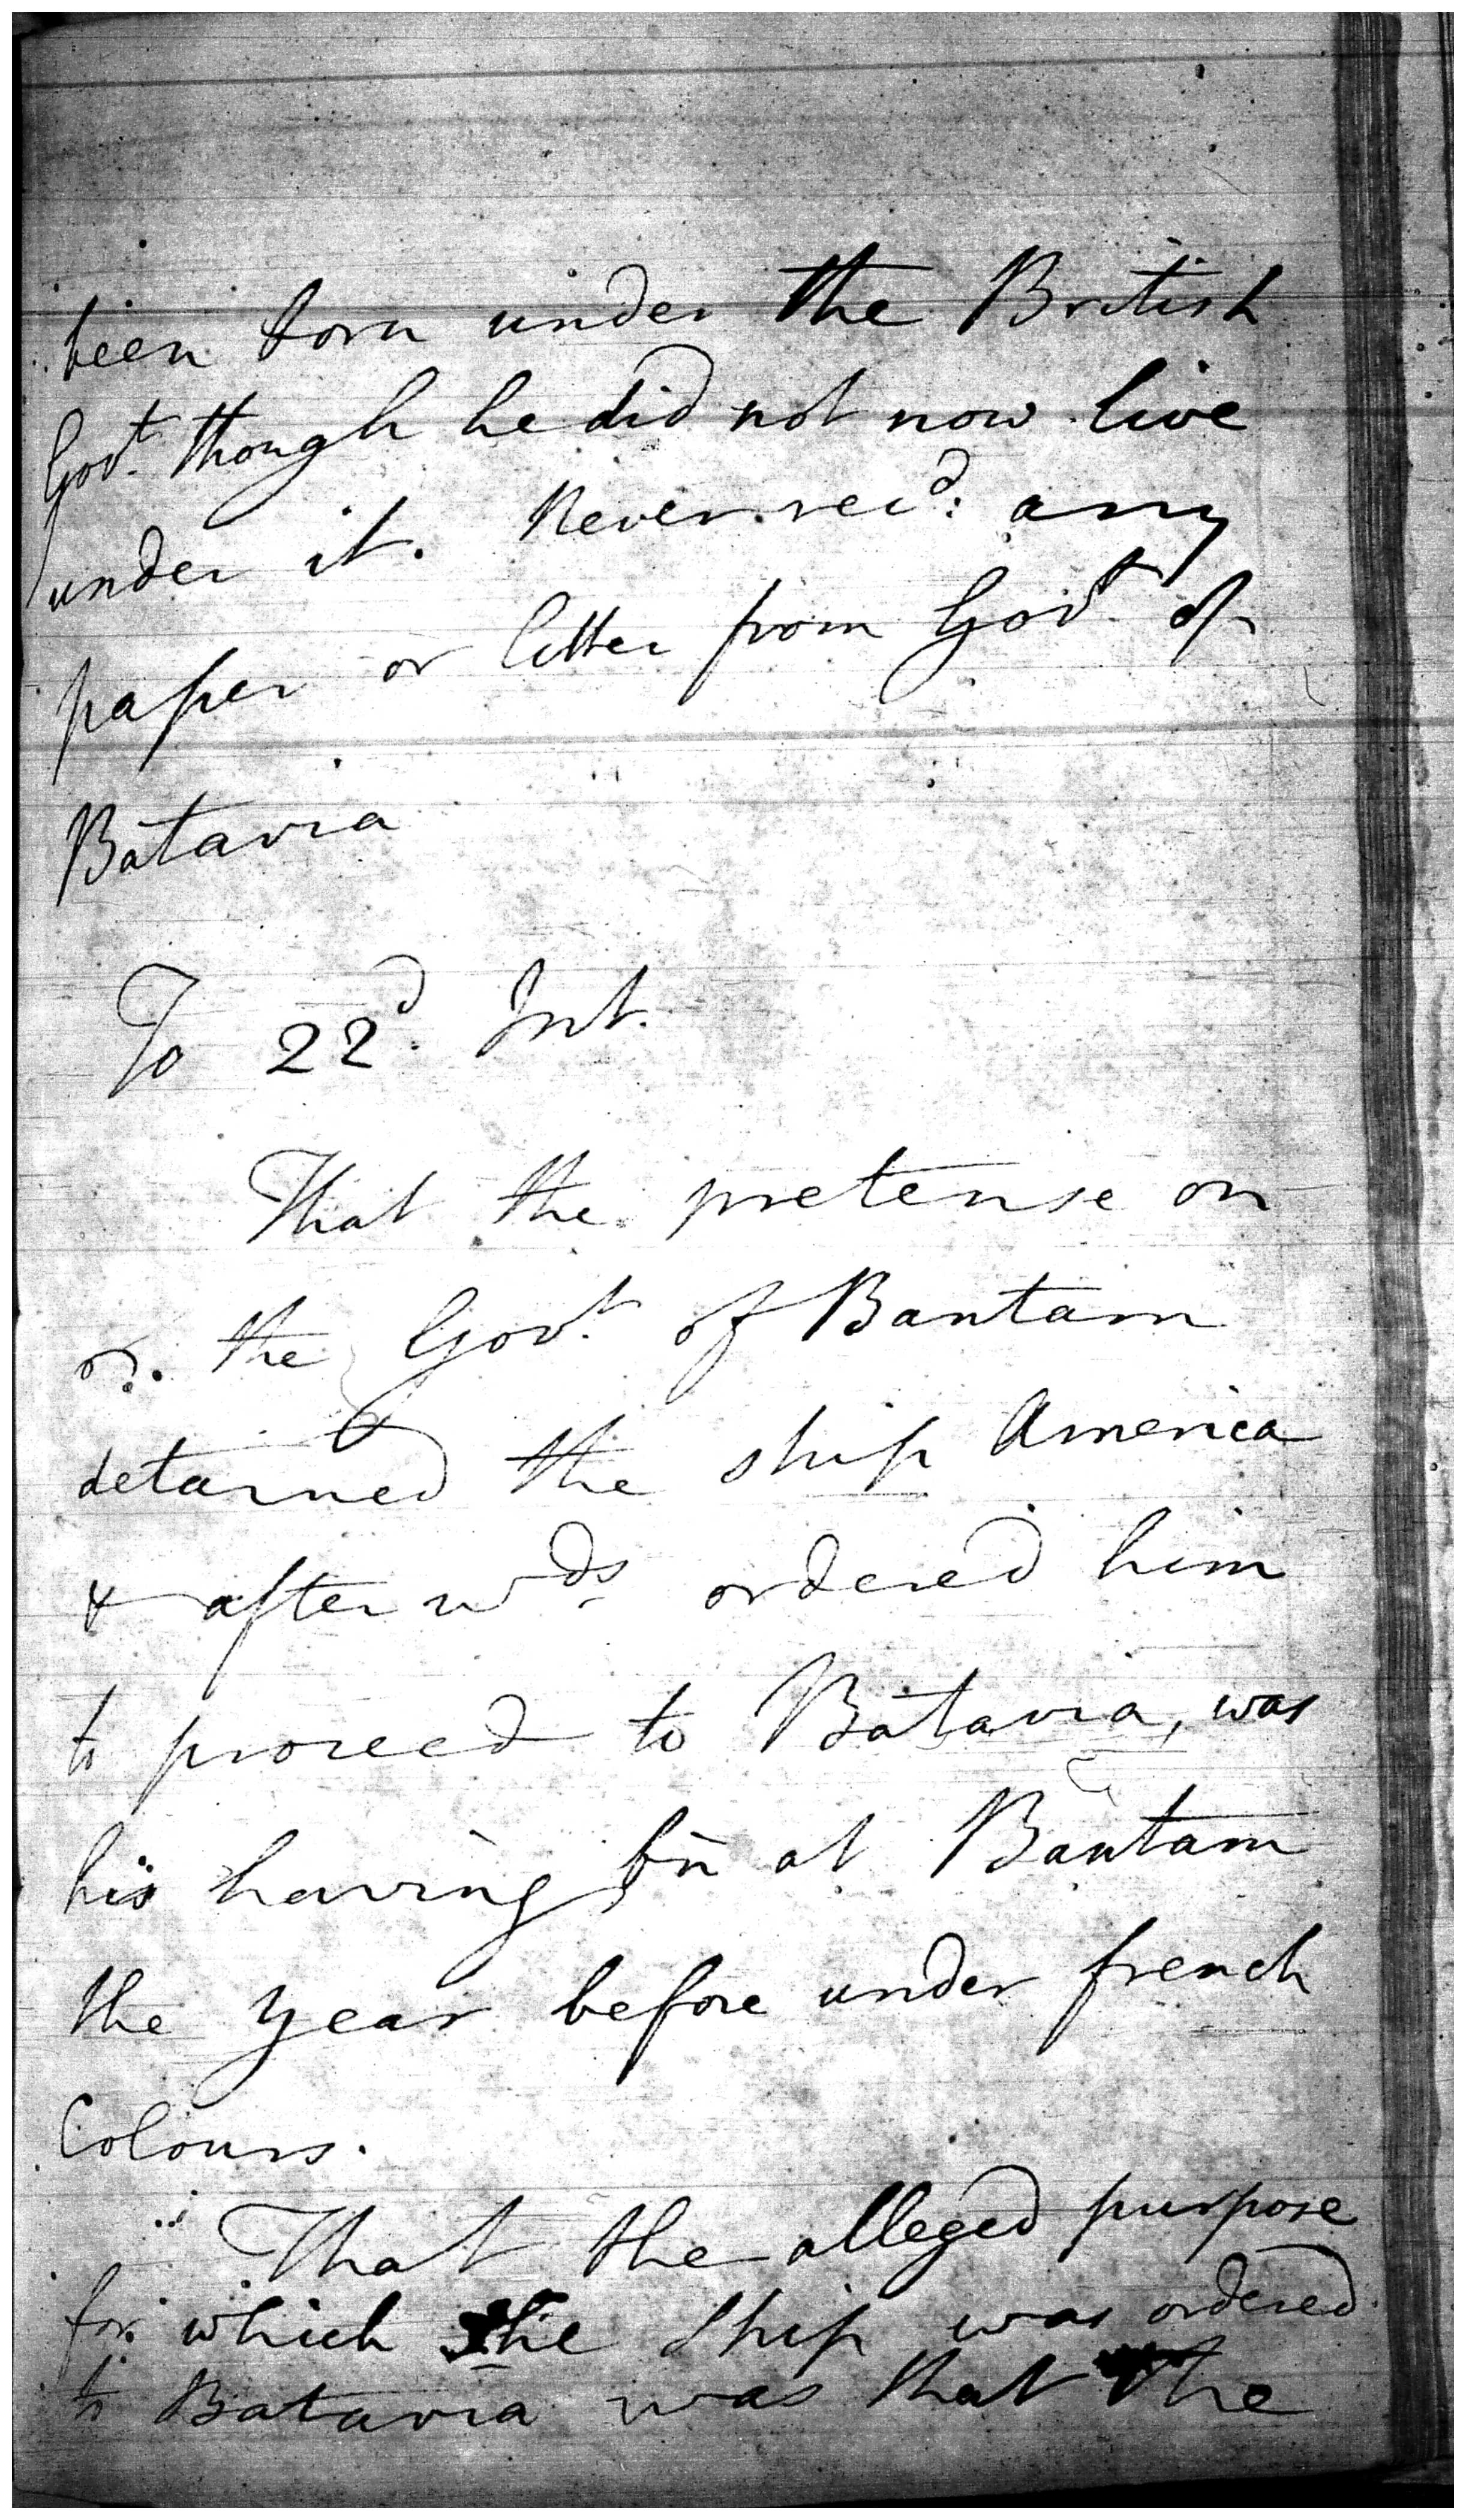 been born under the British
Govt. though he did not now live
under it. Never recd: any
paper or letter from Govt. of
Batavia
To 22d. Int.
That the pretense on
wh. the Govt. of Bantam
detained the ship America
& afterwds ordered him
to proceed to Batavia, was
his having bn at Bantam
the year before under french
Colours.
That the alleged purpose
for which the Ship was ordered
to Batavia was that the